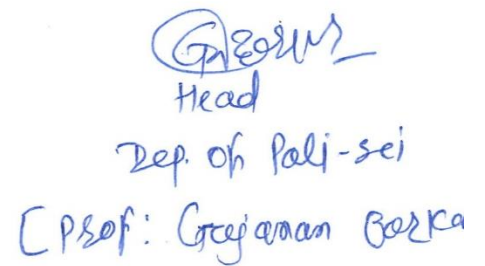 Head
Dep. of Poli-sci
[Prof: Gajanan Borka